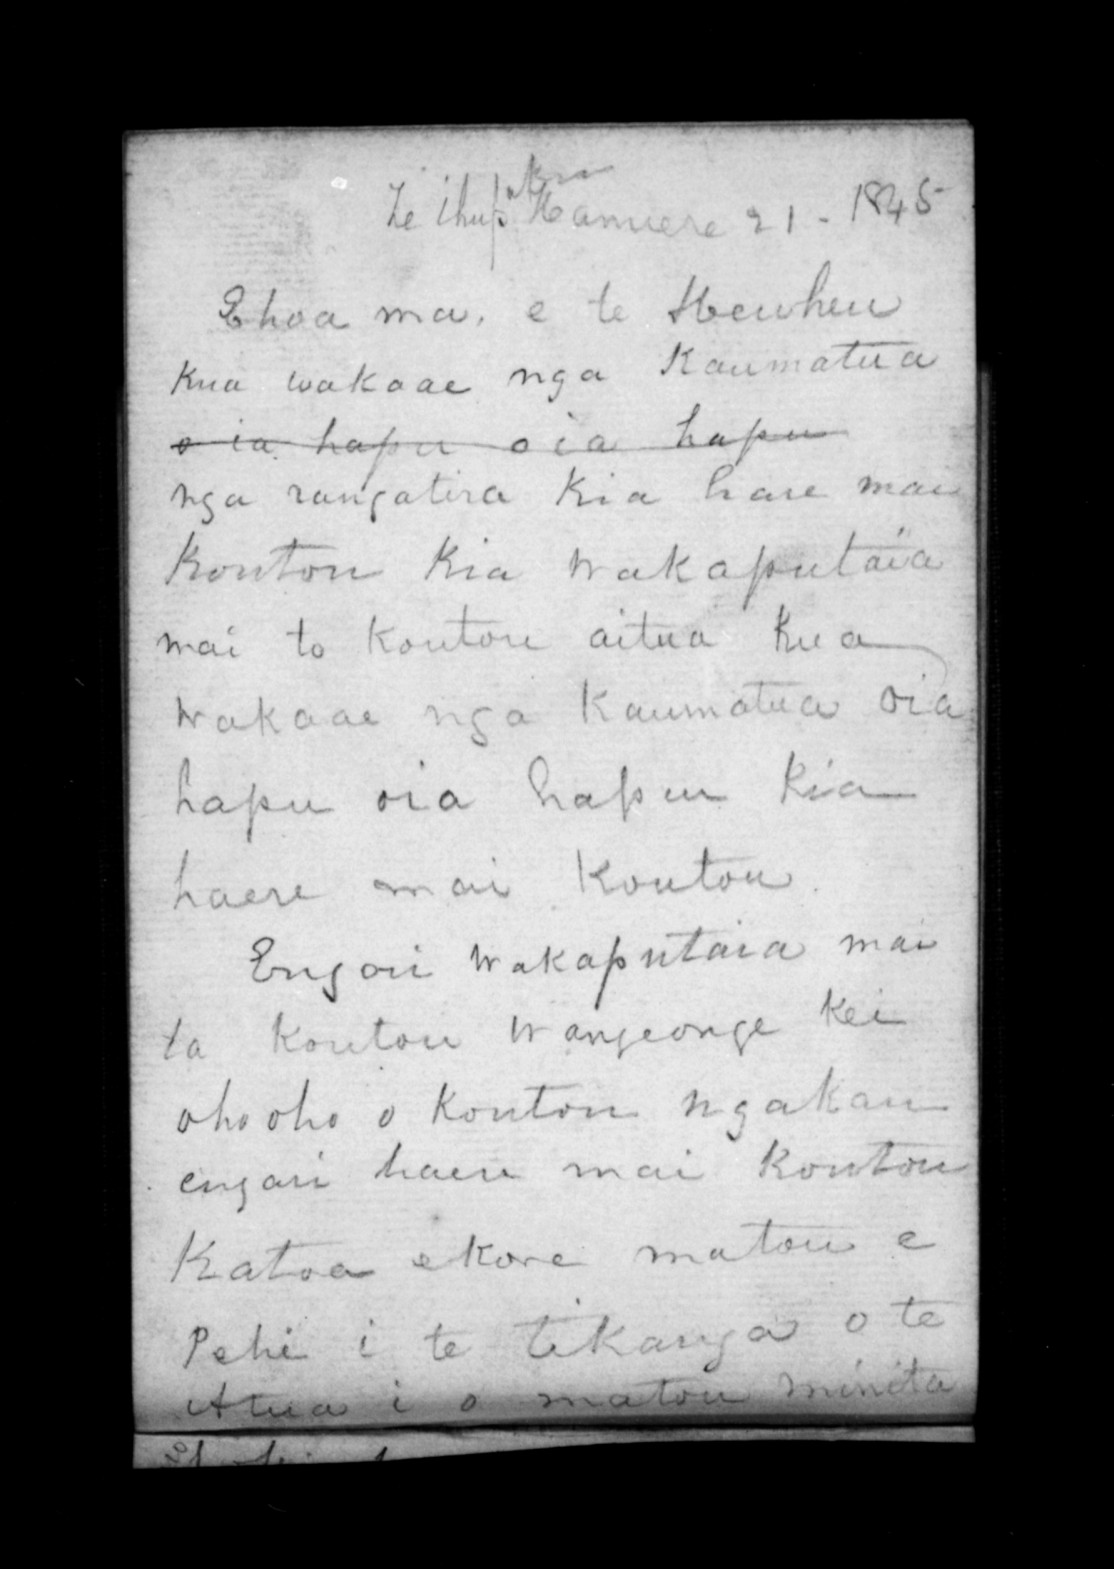 Te Ihupuku Hanuere 21 - 1845
Ehoa ma, e te Heuheu
Kua wakaae nga Kaumatua
o ia hapu o ia hapu
nga rangatira Kia hare mai
Koutou Kia wakaputaia
mai to Koutou aitua Kua
wakaae nga Kaumatua oia
hapu oia hapu Kia
haere mai Koutou.
Engari wakaputaia mai
ta Koutou wangeonge Kei
ohooho o Koutou ngakau
engari haere mai Koutou
Katoa ekore matou e
Pehi i te tikanga o te
Atua i o matou minita